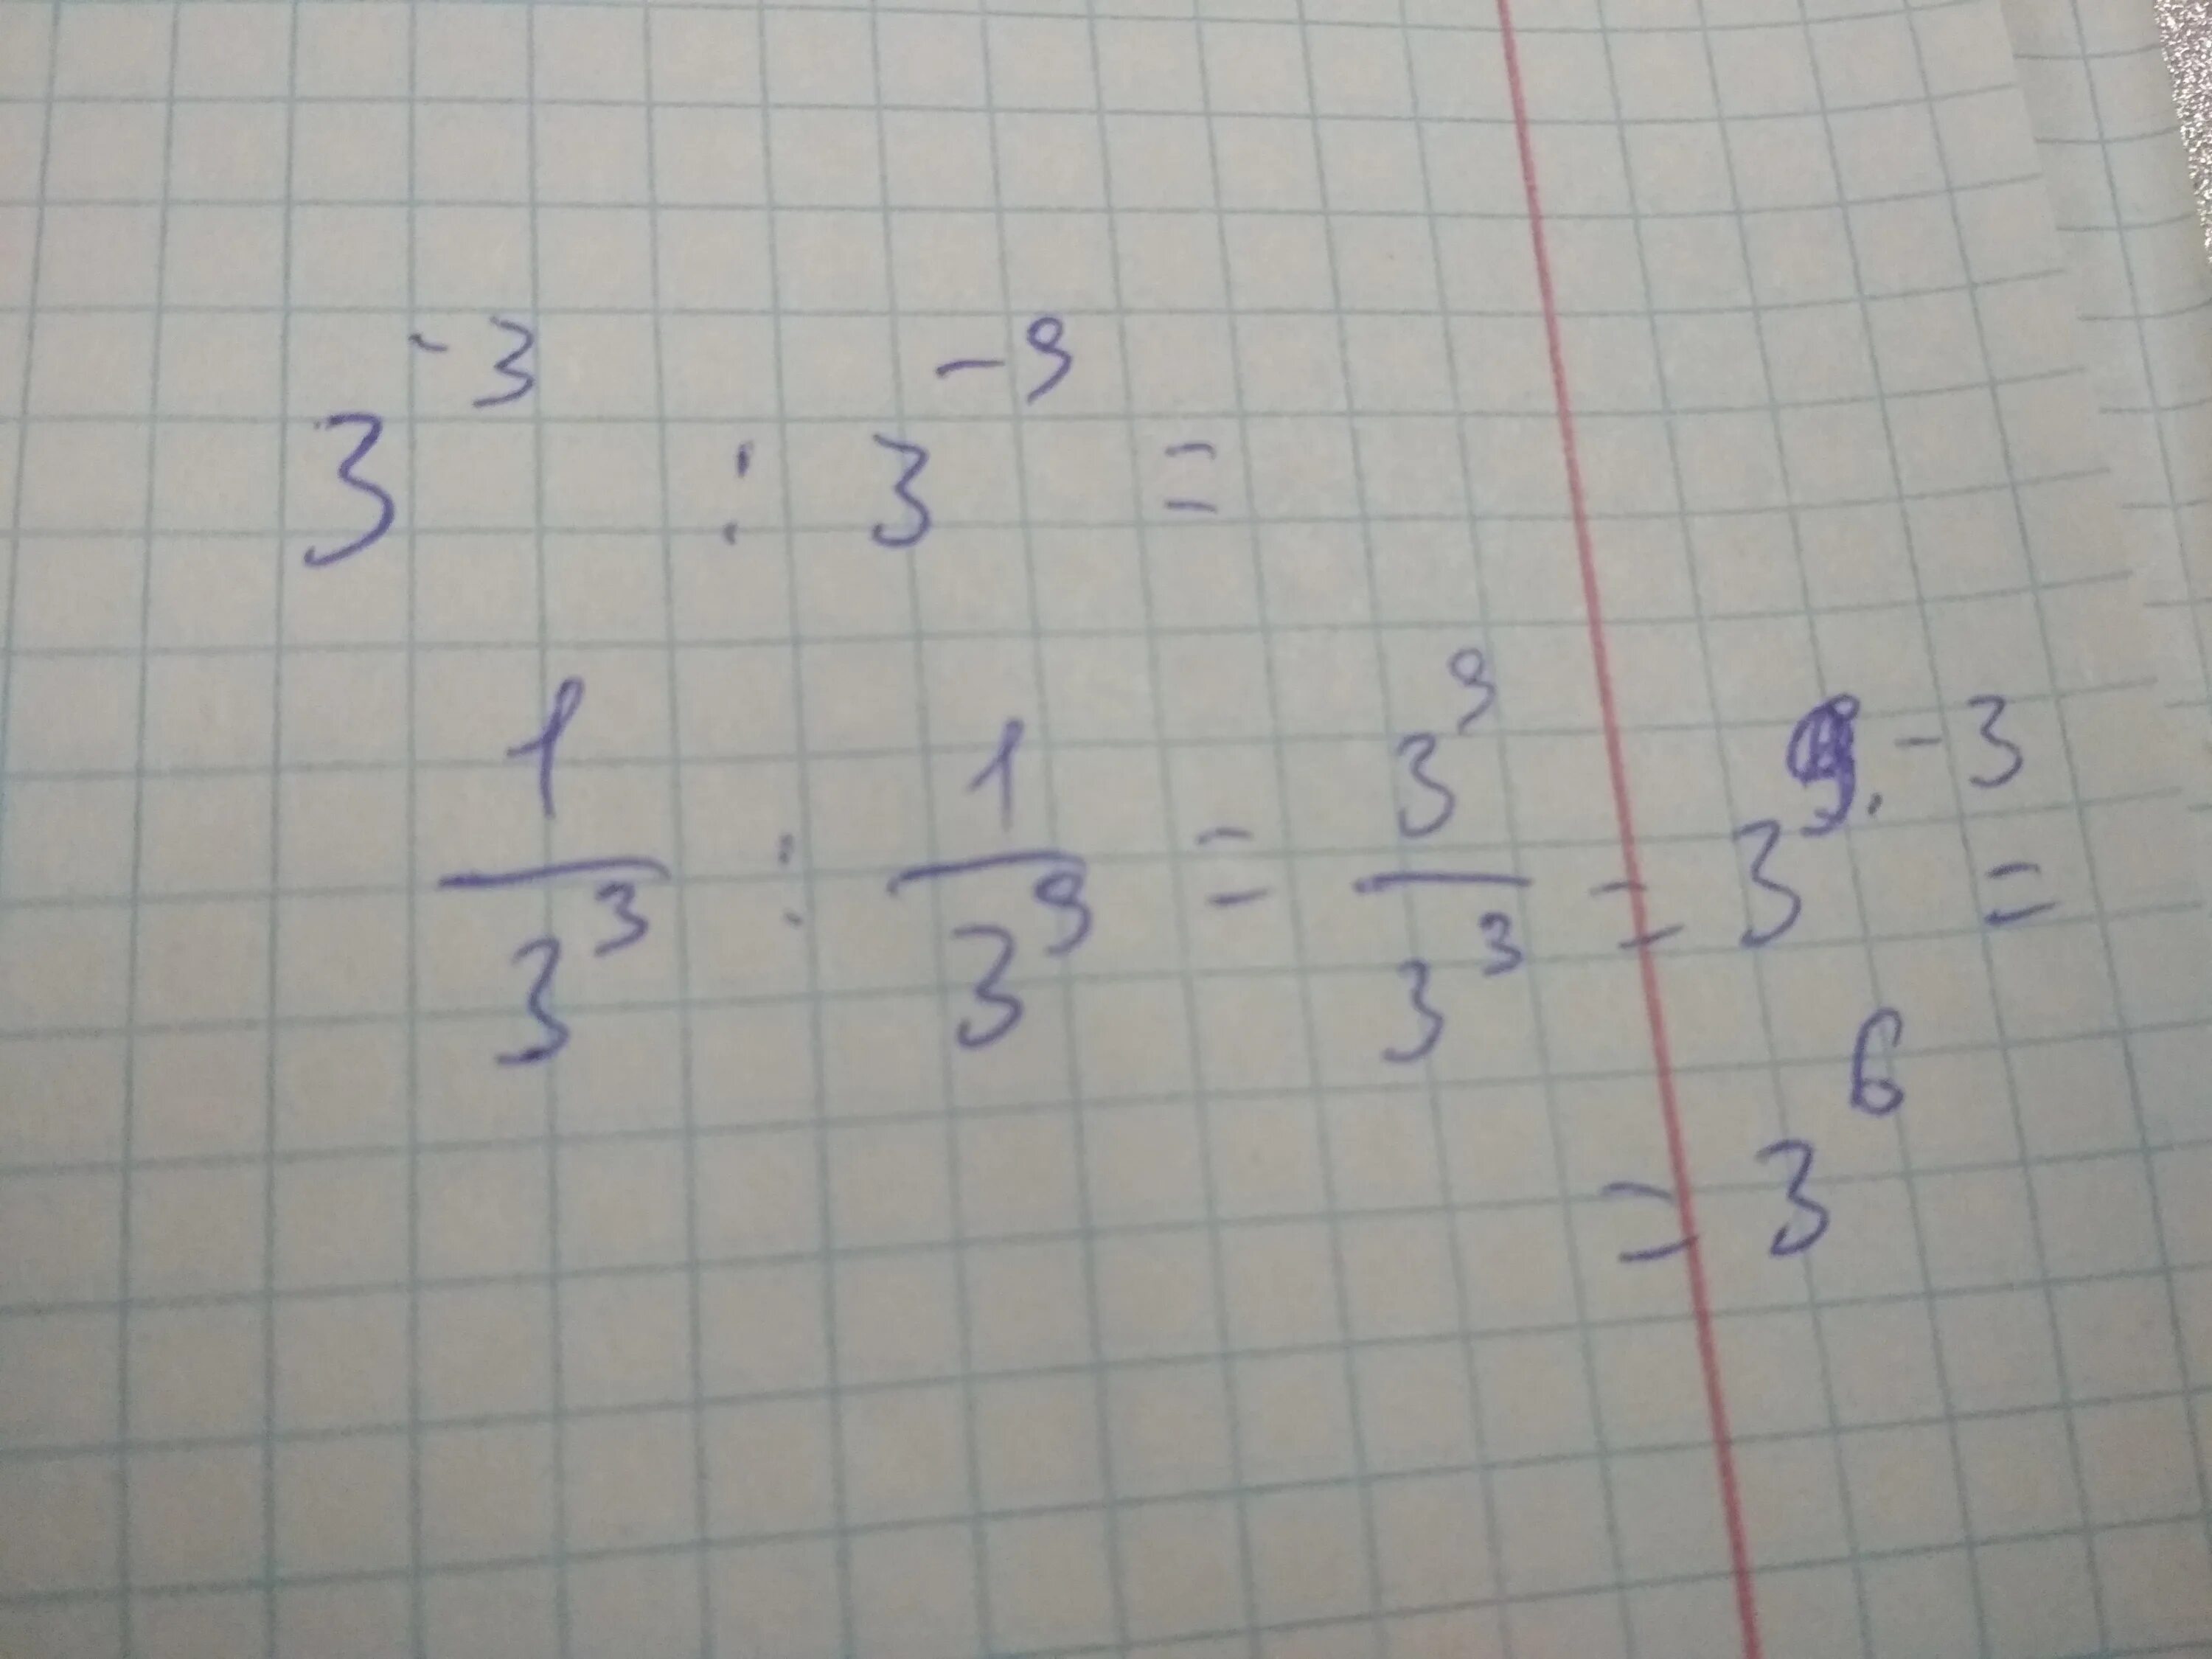 3⁻³ : 3⁻⁹ =
1/3³ : 1/3⁹ = 3⁹/3³ = 3⁹⁻³ =
= 3⁶